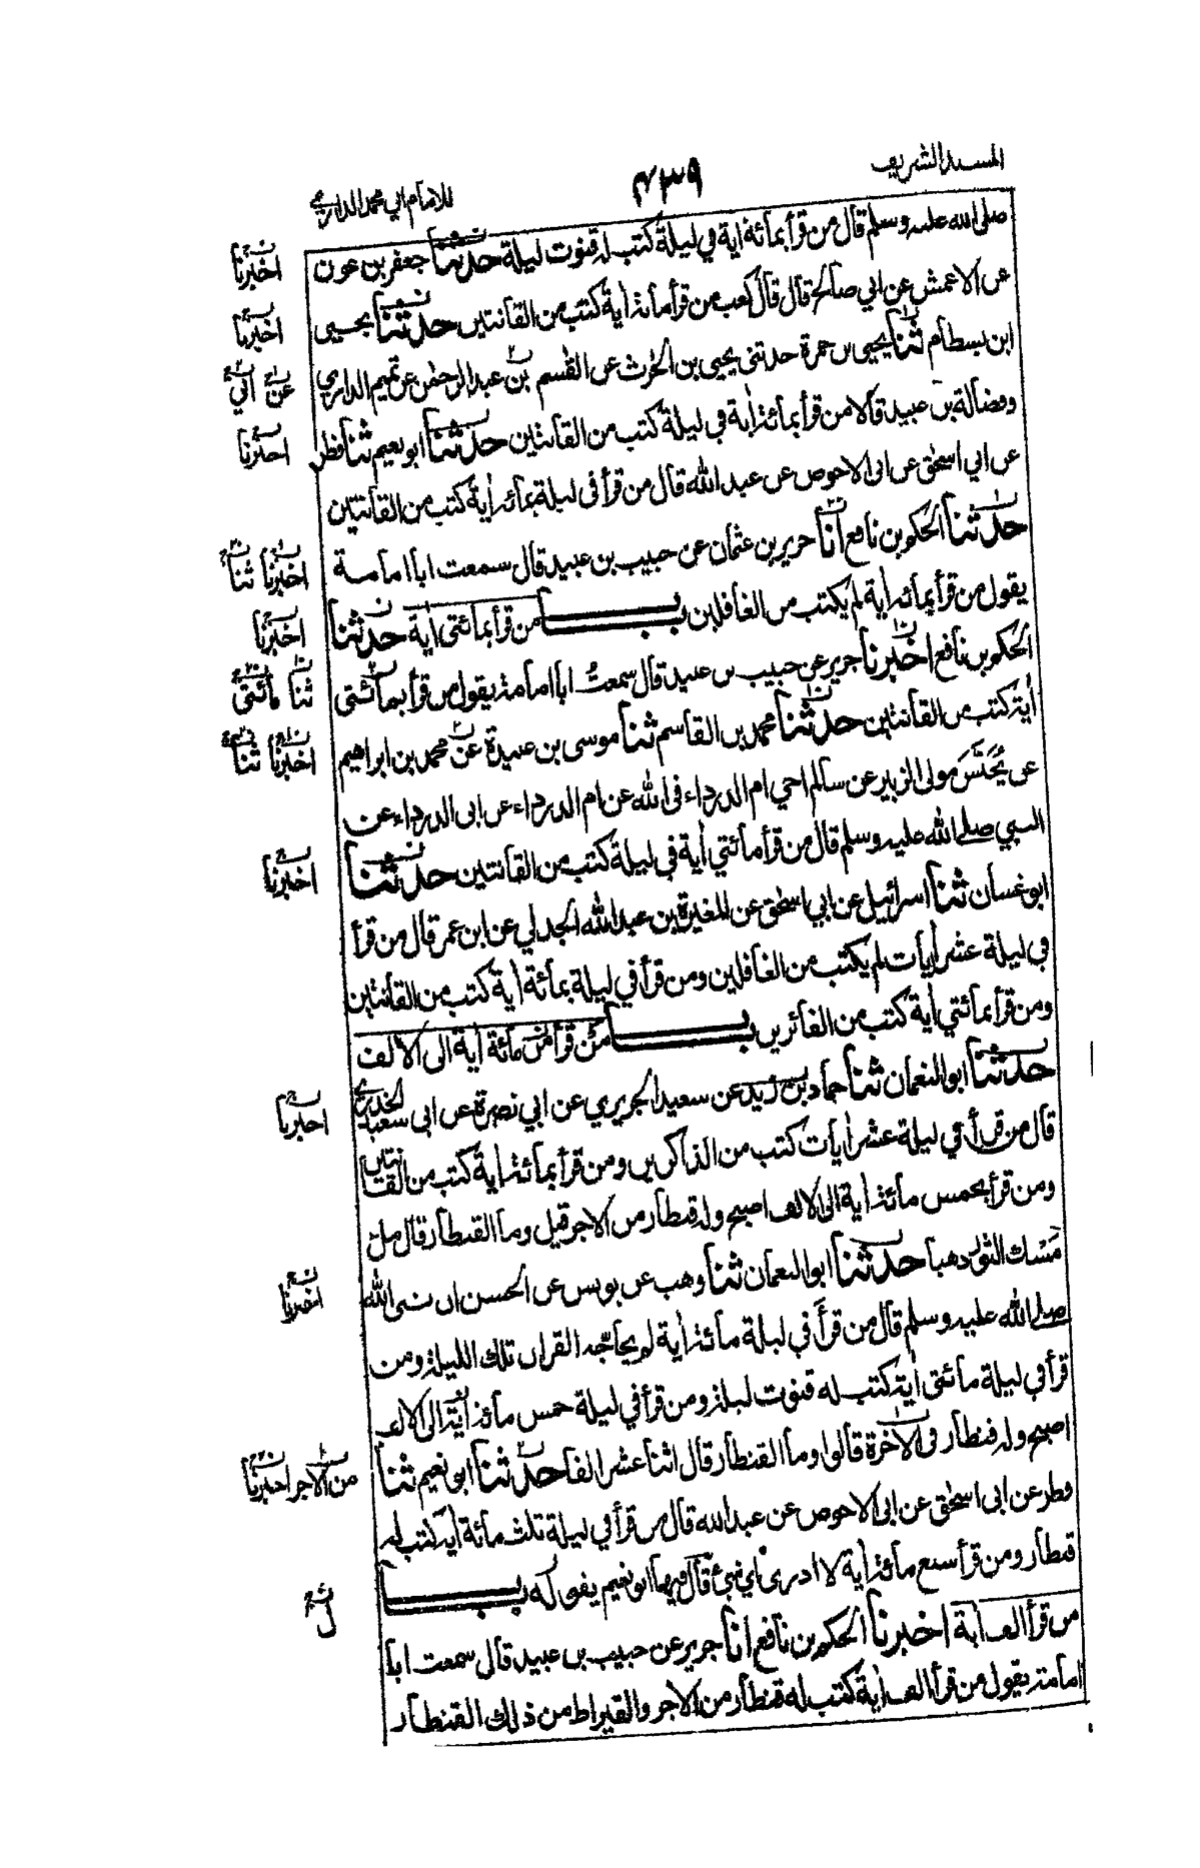 المسند الشريف
٤٣٩
للامام ابي محمد الدارمي
صلى الله عليه وسلم قال من قرأ بمائة اية في ليلة كتب له قنوت ليلة حدثنا جعفر بن عون
اخبرنا
عن الاعمش عن ابي صالح قال قال كعب من قرأ مائة اية كتب من القانتين حدثنا يحيى
اخبرنا
ابن بسطام ثنا يحيى بن حمزة حدثني يحيى بن الحرث عن القسم بن عبد الرحمن عن تميم الداري
عن ابي
وفضالة بن عبيد قالا من قرأ بمائة اية في ليلة كتب من القانتين حدثنا ابو نعيم ثنا فطر
اخبرنا
عن ابي اسحق عن ابي الاحوص عن عبد الله قال من قرأ في ليلة بمائة اية كتب من القانتين
حدثنا الحكم بن نافع انا حريز بن عثمان عن حبيب بن عبيد قال سمعت ابا امامة
اخبرنا ثنا
يقول من قرأ بمائة اية لم يكتب من الغافلين باب من قرأ بمائتي اية حدثنا
اخبرنا
الحكم بن نافع اخبرنا جرير عن حبيب بن عبيد قال سمعت ابا امامة يقول من قرأ بمائتي
ثنا مائتي
أية كتب من القانتين حدثنا محمد بن القاسم ثنا موسى بن عبيدة عن محمد بن ابراهيم
اخبرنا ثنا
عن يُحَنَّسَ مولى الزبير عن سالم اخي ام الدرداء في الله عن ام الدرداء عن ابي الدرداء عن
النبي صلى الله عليه وسلم قال من قرأ مائتي أية في ليلة كتب من القانتين حدثنا
اخبرنا
ابو غسان ثنا اسرائيل عن ابي اسحق عن المغيرة بن عبد الله الجدلي عن ابن عمر قال من قرأ
في ليلة عشر أيات لم يكتب من الغافلين ومن قرأ في ليلة بمائة أية كتب من القانتين
ومن قرأ بمائتي أية كتب من الفائزين باب من قرأ من مائة أية الى الالف
حدثنا ابو النعمان ثنا حماد بن زيد عن سعيد الجريري عن ابي نضرة عن ابي سعيد الخدري
اخبرنا
قال من قرأ في ليلة عشر أيات كتب من الذاكرين ومن قرأ بمائة أية كتب من القانتين
ومن قرأ بخمس مائة اية الى الالف اصبح وله قنطار من الاجر قيل وما القنطار قال ملء
مَسْك الثور ذهبا حدثنا ابو النعمان ثنا وهب عن يونس عن الحسن ان نبي الله
اخبرنا
صلى الله عليه وسلم قال من قرأ في ليلة مائة أية لم يحاجه القران تلك الليلة ومن
قرأ في ليلة مائتي أية كتب له قنوت ليلة ومن قرأ في ليلة خمس مائة أية الى الالف
اصبح وله قنطار في الاخرة قالوا وما القنطار قال اثنا عشر الفا حدثنا ابو نعيم ثنا
من الاجر اخبرنا
فطر عن ابي اسحق عن ابي الاحوص عن عبد الله قال من قرأ في ليلة ثلث مائة أية كتب له
قنطار ومن قرأ سبع مائة أية لا ادري اي شئ قال فيها ابو نعيم يفي له باب
ل
من قرأ الف أية اخبرنا الحكم بن نافع انا جرير عن حبيب بن عبيد قال سمعت ابا
امامة يقول من قرأ الف أية كتب له قنطار من الاجر والقيراط من ذلك القنطار